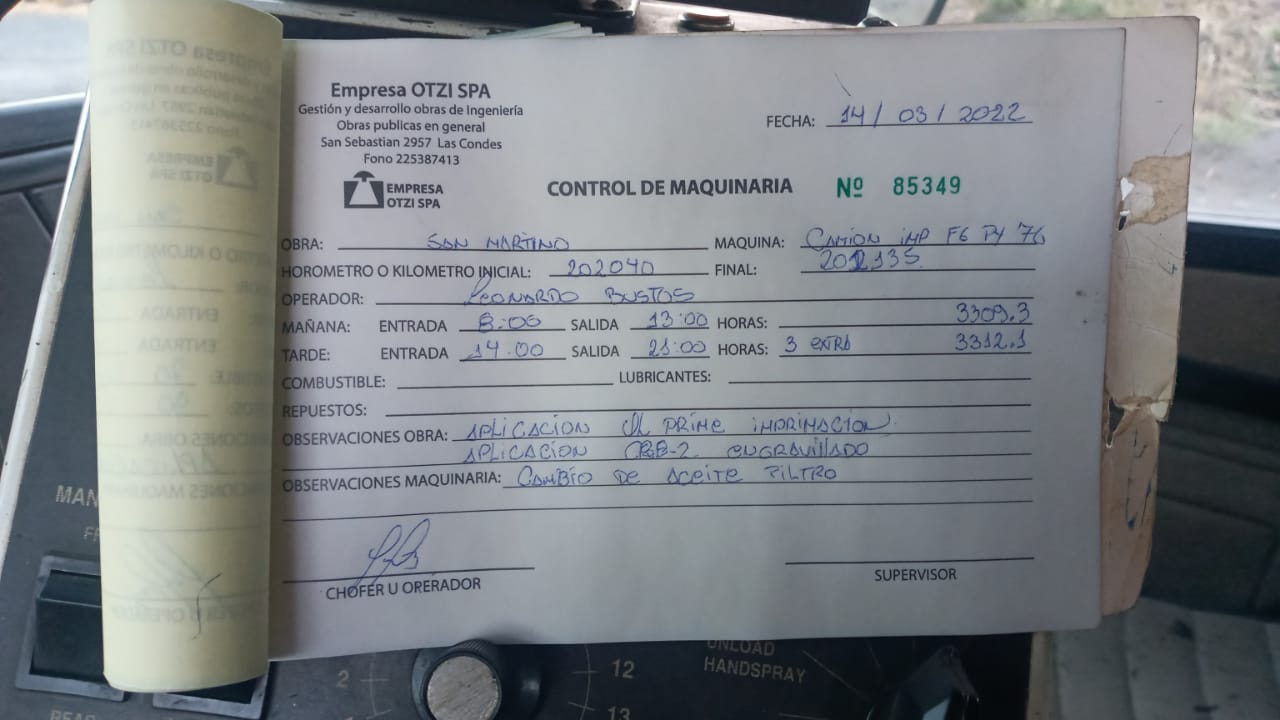 Empresa OTZI SPA
Gestión y desarrollo obras de Ingeniería
Obras publicas en general
San Sebastian 2957 Las Condes
Fono 225387413
EMPRESA
OTZI SPA
FECHA: 14 / 03 / 2022
CONTROL DE MAQUINARIA Nº 85349
OBRA: SAN MARTINO MAQUINA: CAMION IMP FG PY 76
HOROMETRO O KILOMETRO INICIAL: 202040 FINAL: 202135
OPERADOR: LEONARDO BUSTOS
MAÑANA: ENTRADA 8:00 SALIDA 13:00 HORAS: 3309.3
TARDE: ENTRADA 14:00 SALIDA 21:00 HORAS: 3 EXTRA 3312.1
COMBUSTIBLE: LUBRICANTES:
REPUESTOS:
OBSERVACIONES OBRA: APLICACION PRIME IMPRIMACION
APLICACION ENGRAVILLADO
OBSERVACIONES MAQUINARIA: CAMBIO DE ACEITE FILTRO
CHOFER U ORERADOR
SUPERVISOR
MAN
2
12
13
UNLOAD
HANDSPRAY
REAR